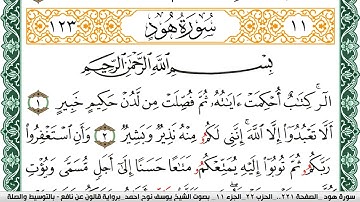 ١١ سُورَةُ هُودٍ ١٢٣
بِسْمِ ٱللَّهِ ٱلرَّحْمَٰنِ ٱلرَّحِيمِ
الٓر كِتَٰبٌ أُحْكِمَتْ ءَايَٰتُهُۥ ثُمَّ فُصِّلَتْ مِن لَّدُنْ حَكِيمٍ خَبِيرٍ ١
أَلَّا تَعْبُدُوٓا۟ إِلَّا ٱللَّهَ إِنَّنِى لَكُمُۥ مِنْهُ نَذِيرٌ وَبَشِيرٌ ٢ وَأَنِ ٱسْتَغْفِرُوا۟
رَبَّكُمْ ثُمَّ تُوبُوٓا۟ إِلَيْهِ يُمَتِّعْكُمُۥ مَّتَٰعًا حَسَنًا إِلَىٰٓ أَجَلٍ مُّسَمًّى وَيُؤْتِ
سورة هود _الصفحة ٢٢١... الحزب ٢٢ الجزء ١١ . بصوت الشيخ يوسف نوح احمد . برواية قالون عن نافع - بالتوسيط والصلة